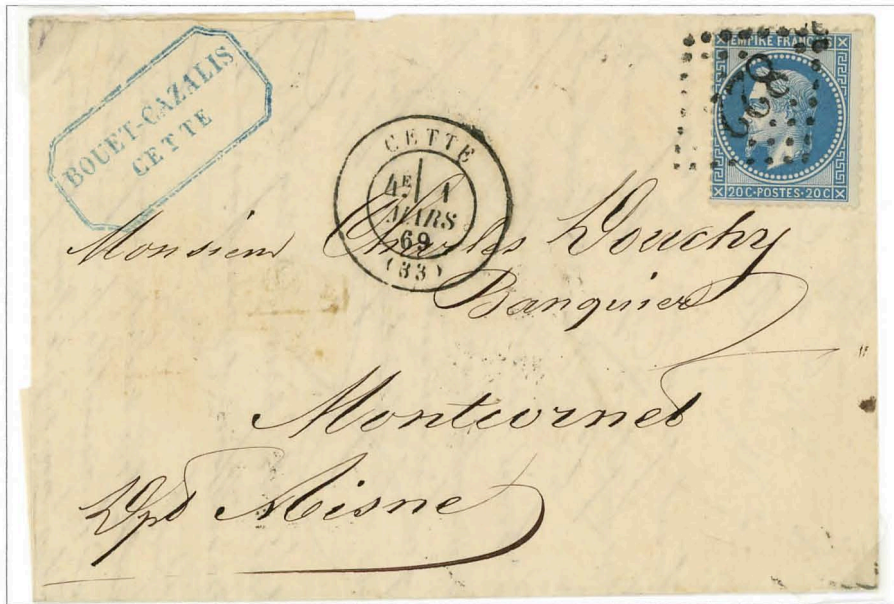 BOUET-CAZALIS
CETTE
CETTE
4E 1
MARS
69
(33)
822
EMPIRE FRANÇAIS
20C-POSTES-20C
Monsieur Charles Douchy
Banquier
Montcornet
Dpt Aisne